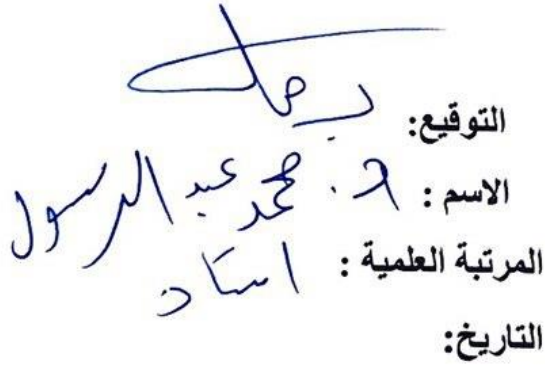 التوقيع:
الاسم : د. محمد عبد الرسول
المرتبة العلمية : استاذ
التاريخ: